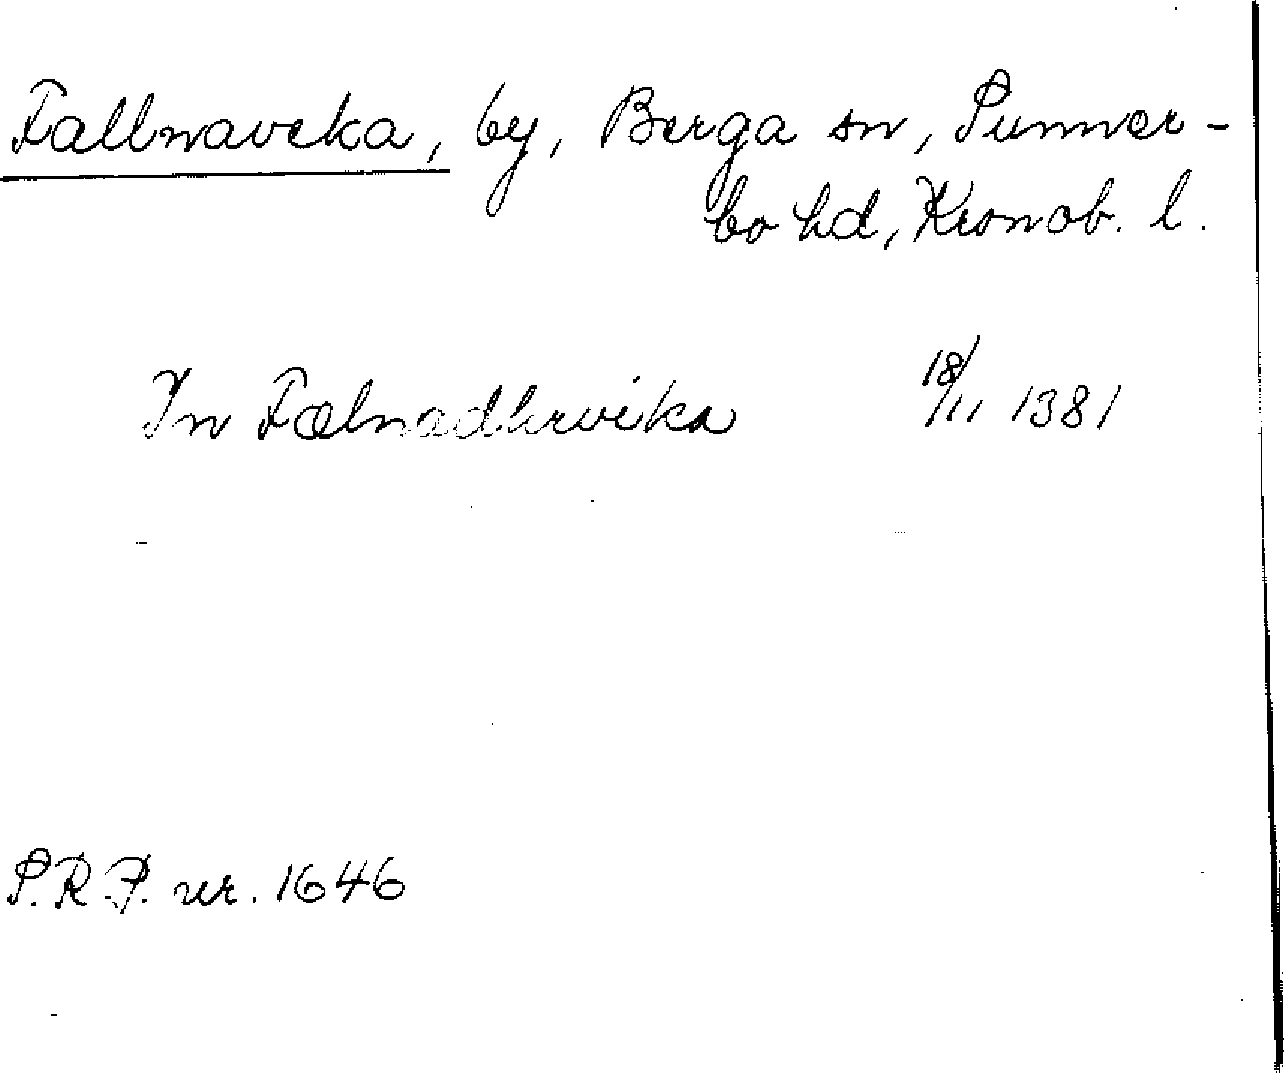 Fallnaveka, by, Berga sn, Sunner-
bo hd, Kronob. l.
In Fælnadhrvika 18/11 1381
S.R.P. nr. 1646